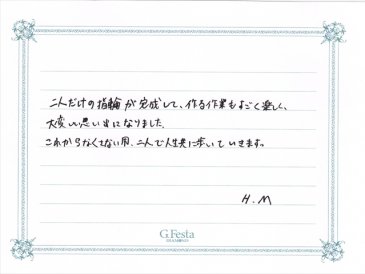 二人だけの指輪が完成して、作る作業もすごく楽しく、
大変いい思い出になりました。
これからなくさない用、二人で人生共に歩いていきます。
H.M
G.Festa